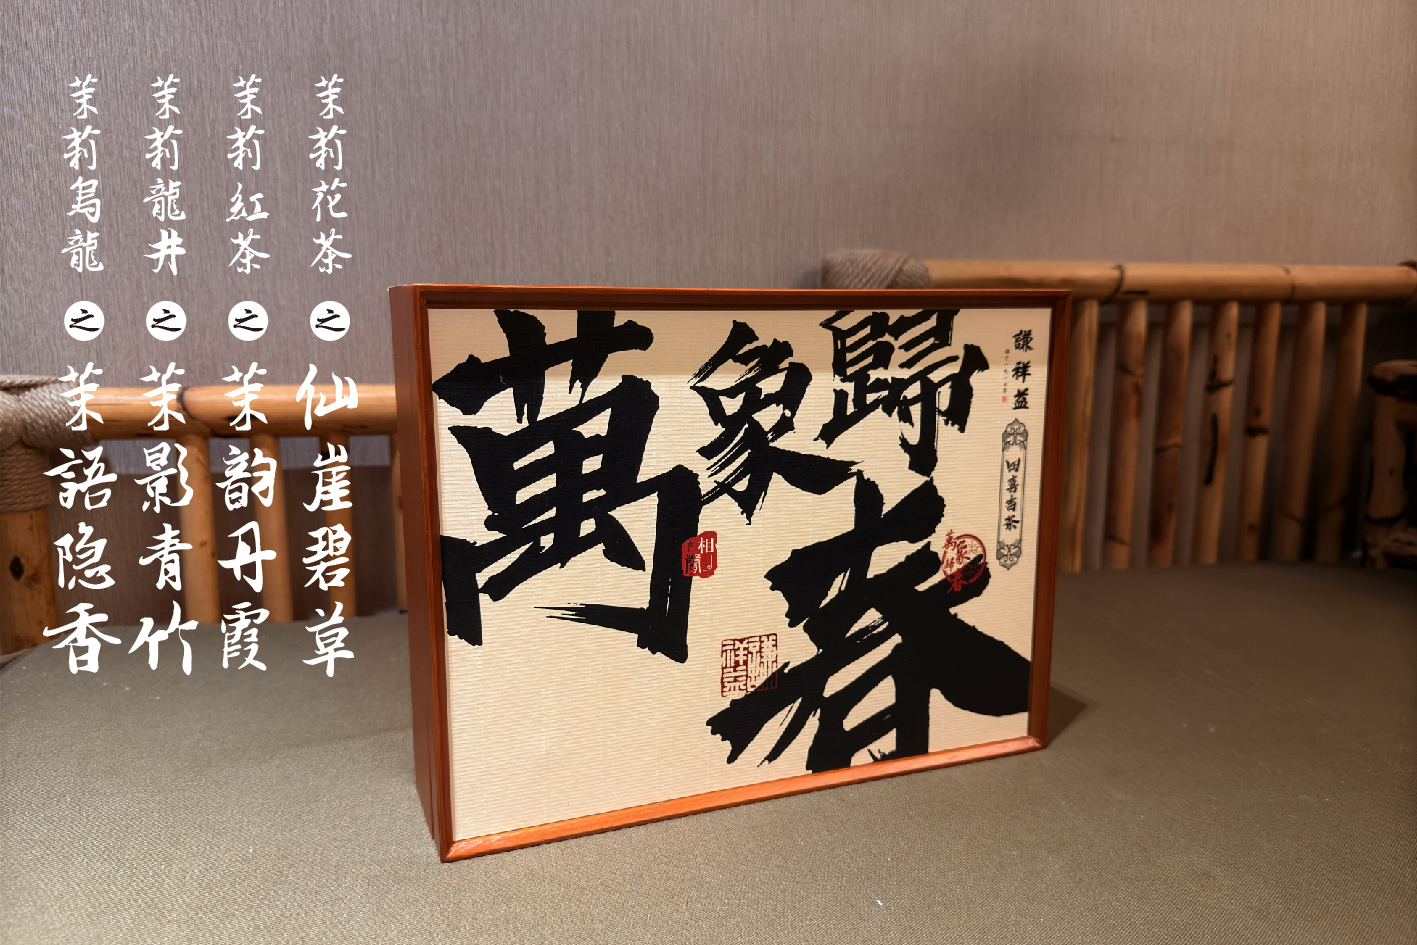 茉莉花茶之仙崖碧草
茉莉紅茶之茉韵丹霞
茉莉龍井之茉影青竹
茉莉烏龍之茉語隐香
謙祥益
四喜吉茶
萬象歸春
萬象歸春
謙祥益